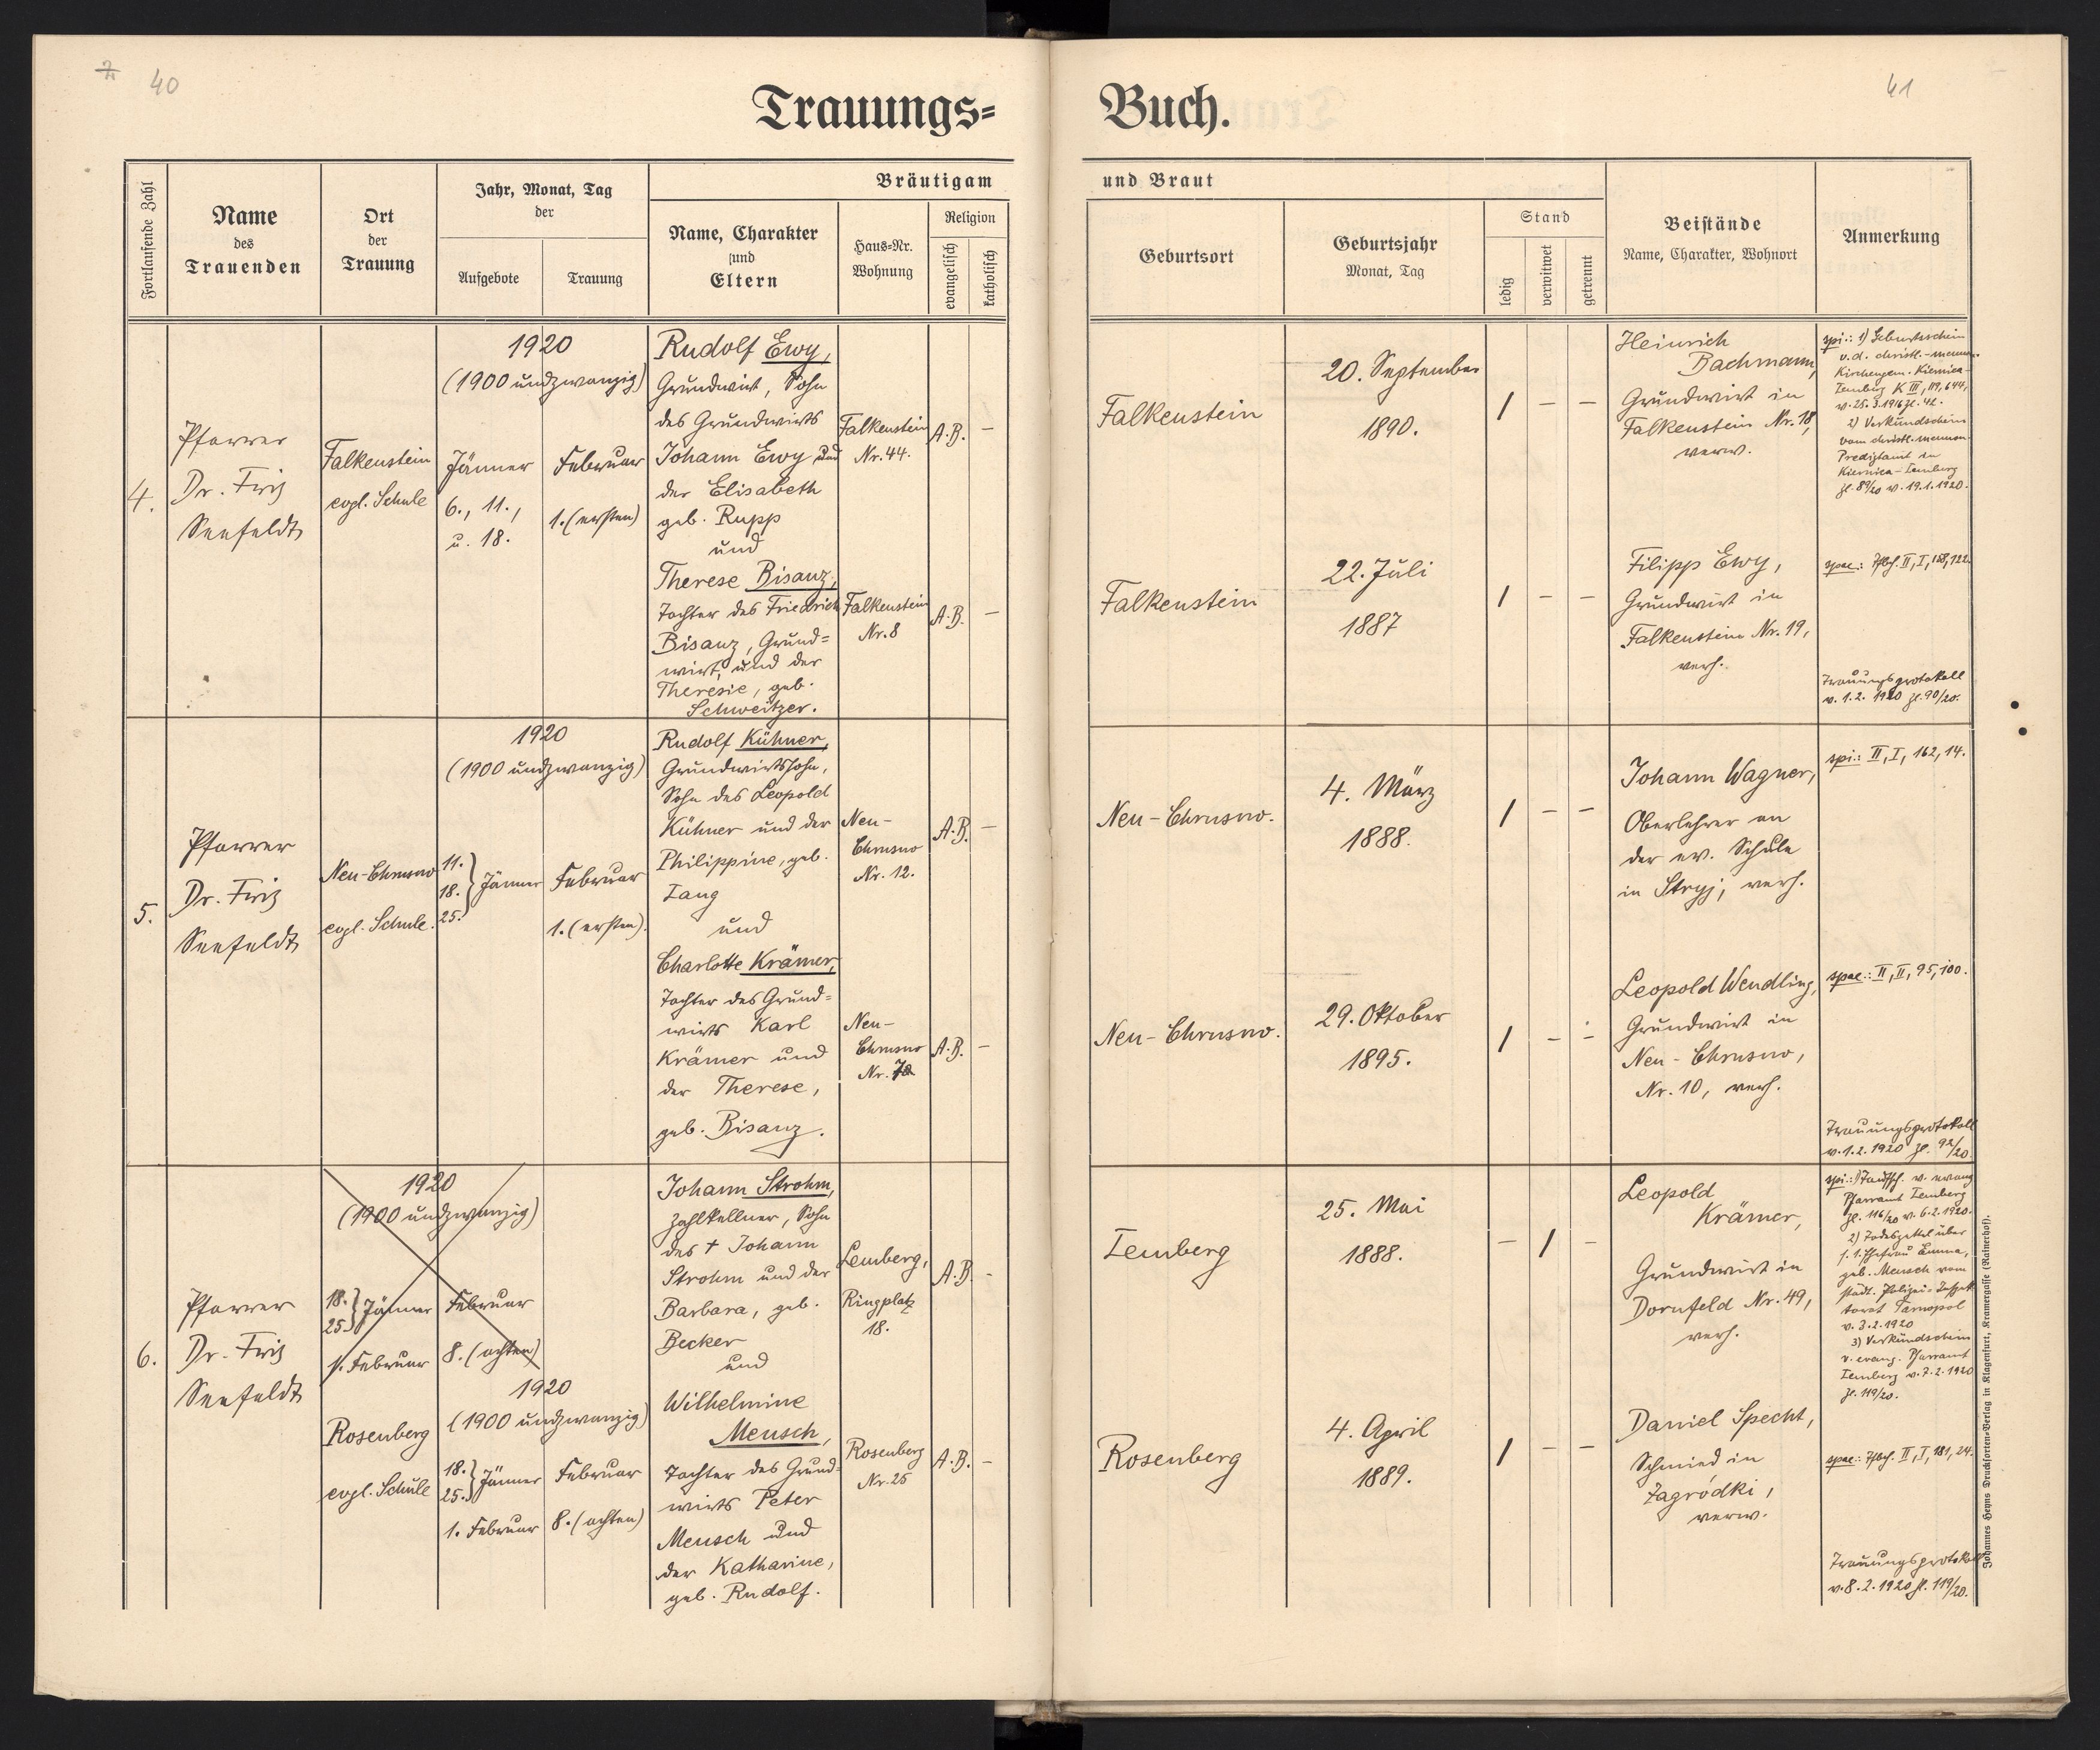 40
41
Trauungs=
Buch.
Fortlaufende Zahl
Name
des
Trauenden
Ort
der
Trauung
Jahr, Monat, Tag
der
Aufgebote
Trauung
Bräutigam
Name, Charakter
und
Eltern
Haus=Nr.
Wohnung
Religion
evangelisch
katholisch
und Braut
Geburtsort
Geburtsjahr
Monat, Tag
Stand
ledig
verwitwet
getrennt
Beistände
Name, Charakter, Wohnort
Anmerkung
4.
Pfarrer
Dr. Fritz
Seefeldt
Falkenstein
evgl. Schule
1920
(1900 undzwanzig)
Jänner
6., 11.,
u. 18.
Februar
1. (ersten)
Rudolf Ewy,
Grundwirt, Sohn
des Grundwirts
Johann Ewy und
der Elisabeth
geb. Rupp
und
Therese Bisanz,
Tochter des Friedrich
Bisanz, Grund=
wirt, und der
Theresie, geb.
Schweitzer.
Falkenstein
Nr. 44.
A.B. –
Falkenstein
Nr. 8
A.B. –
Falkenstein
20. September
1890.
/ – –
Falkenstein
22. Juli
1887
/ – –
Heinrich
Bachmann,
Grundwirt in
Falkenstein Nr. 18,
verw.
Filipp Ewy,
Grundwirt in
Falkenstein Nr. 19,
verh.
spi.: 1) Geburtsschein
v. d. christl.-menn.
Kirchengem. Kiernica-
Lemberg K III, 119, 644,
v. 25.3.1916 zl. 42.
2) Verkündschein
vom christl. mennon.
Predigtamt in
Kiernica-Lemberg
zl. 89/20 v. 19.1.1920.
spae.: Tfbch. II, I, 158, 122.
Trauungsprotokoll
v. 1.2. 1920 zl. 90/20.
5.
Pfarrer
Dr. Fritz
Seefeldt
Neu-Chrusno
evgl. Schule.
1920
(1900 undzwanzig)
11.
18. } Jänner
25.
Februar
1. (ersten).
Rudolf Kühner,
Grundwirtssohn,
Sohn des Leopold
Kühner und der
Philippine, geb.
Lang
und
Charlotte Krämer,
Tochter des Grund=
wirts Karl
Krämer und
der Therese,
geb. Bisanz.
Neu-
Chrusno
Nr. 12.
A.B. –
Neu-
Chrusno
Nr.
A.B. –
Neu-Chrusno.
4. März
1888.
/ – –
Neu-Chrusno.
29. Oktober
1895.
/ – –
Johann Wagner,
Oberlehrer an
der ev. Schule
in Stryj, verh.
Leopold Wendling,
Grundwirt in
Neu-Chrusno,
Nr. 10, verh.
spi.: II, I, 162, 14.
spae.: II, II, 95, 100.
Trauungsprotokoll
v. 1.2. 1920 zl. 92/20.
6.
Pfarrer
Dr. Fritz
Seefeldt
1920
(1900 undzwanzig)
18.
25. } Jänner
1. Februar
Februar
8. (achten)
Rosenberg
evgl. Schule
1920
(1900 undzwanzig)
18.
25. } Jänner
1. Februar
Februar
8. (achten)
Johann Strohm,
Zahlkellner, Sohn
des † Johann
Strohm und der
Barbara, geb.
Becker
und
Wilhelmine
Mensch,
Tochter des Grund=
wirts Peter
Mensch und
der Katharine,
geb. Rudolf.
Lemberg,
Ringplatz
18.
A.B. -
Rosenberg
Nr. 25
A.B. –
Lemberg
25. Mai
1888.
– / –
Rosenberg
4. April
1889.
/ – –
Leopold
Krämer,
Grundwirt in
Dornfeld Nr. 49,
verh.
Daniel Specht,
Schmied in
Zagródki,
verw.
spi.: 1) Taufsch. v. evang
Pfarramt Lemberg
zl. 116/20 v. 6.2.1920.
2) Todeszettel über
s. 1. Ehefrau Emma,
geb. Mensch vom
städt. Polizei-Inspek
torat Tarnopol
v. 3.2.1920
3) Verkündschein
v. evang. Pfarramt
Lemberg v. 7.2.1920
zl. 119/20.
spae.: Tfbch. II, I, 181, 24.
Trauungsprotokoll
v. 8.2.1920 zl. 119/20.
Johannes Heyns Drucksorten=Verlag in Klagenfurt, Kramergasse (Rainerhof).